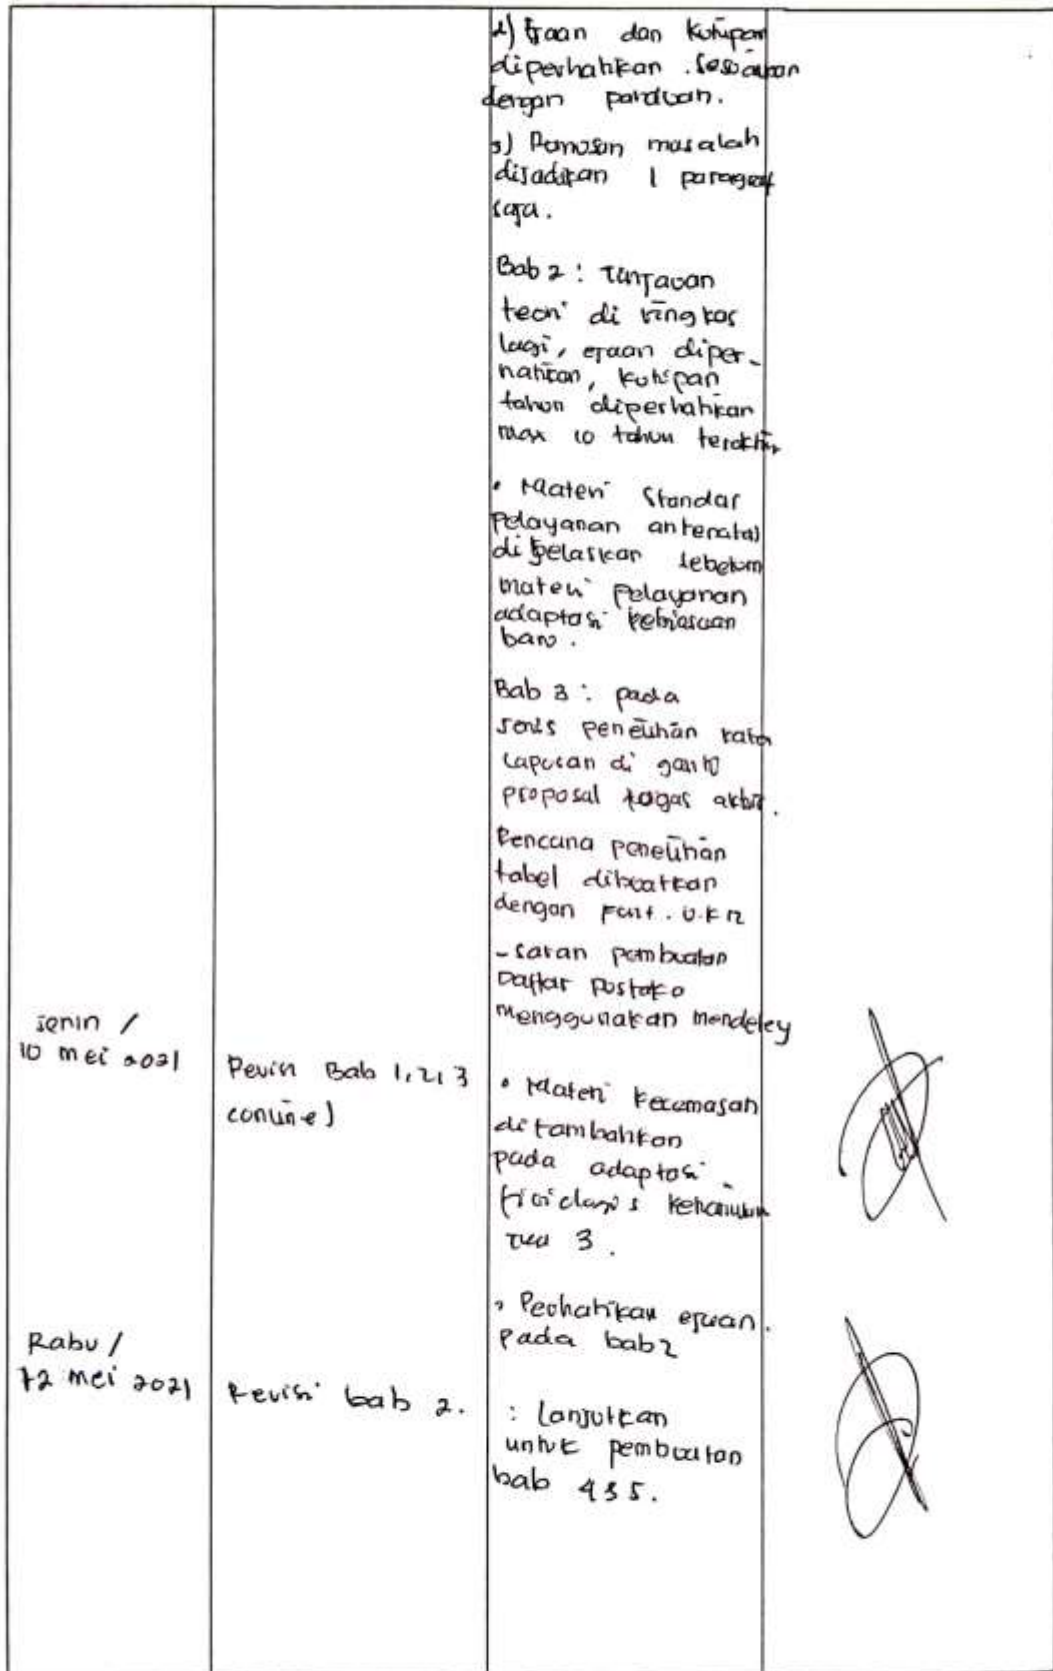 2) Ejaan dan kutipan
diperhatikan. Sesuaikan
dengan panduan.
3) Rumusan masalah
disadikan 1 paragraf
saja.
Bab 2 : Tinjauan
teori di ringkas
lagi, ejaan diper-
hatikan, kutipan
tahun diperhatikan
max 10 tahun terakhir
• Materi Standar
Pelayanan antenatal
di jelaskan sebelum
materi pelayanan
adaptasi kebiasaan
baru.
Bab 3 : pada
jenis penelitian kata
laporan di ganti
proposal tugas akhir.
Rencana penelitian
tabel dibuatkan
dengan font.
- saran pembuatan
Daftar Pustaka
menggunakan mendeley
Senin /
10 mei 2021
Revisi Bab 1, 2, 3
(online)
• Materi kecemasan
ditambahkan
pada adaptasi
fisiologis kehamilan
TM 3.
Rabu /
12 mei 2021
Revisi bab 2.
• Perhatikan ejaan.
pada bab 2
: Lanjutkan
untuk pembuatan
bab 4 & 5.